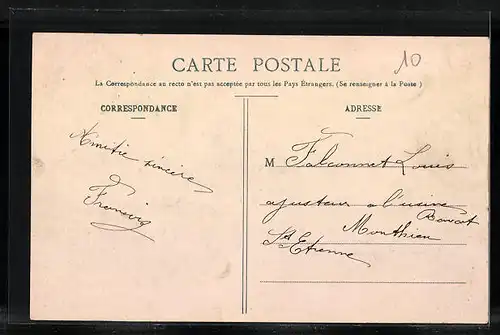 10
CARTE POSTALE
La Correspondance au recto n'est pas acceptée par tous les Pays Étrangers. (Se renseigner à la Poste)
CORRESPONDANCE
ADRESSE
Amitié sincère
M Falconnet Louis
ajusteur a l'usine
Monthieu
St Etienne